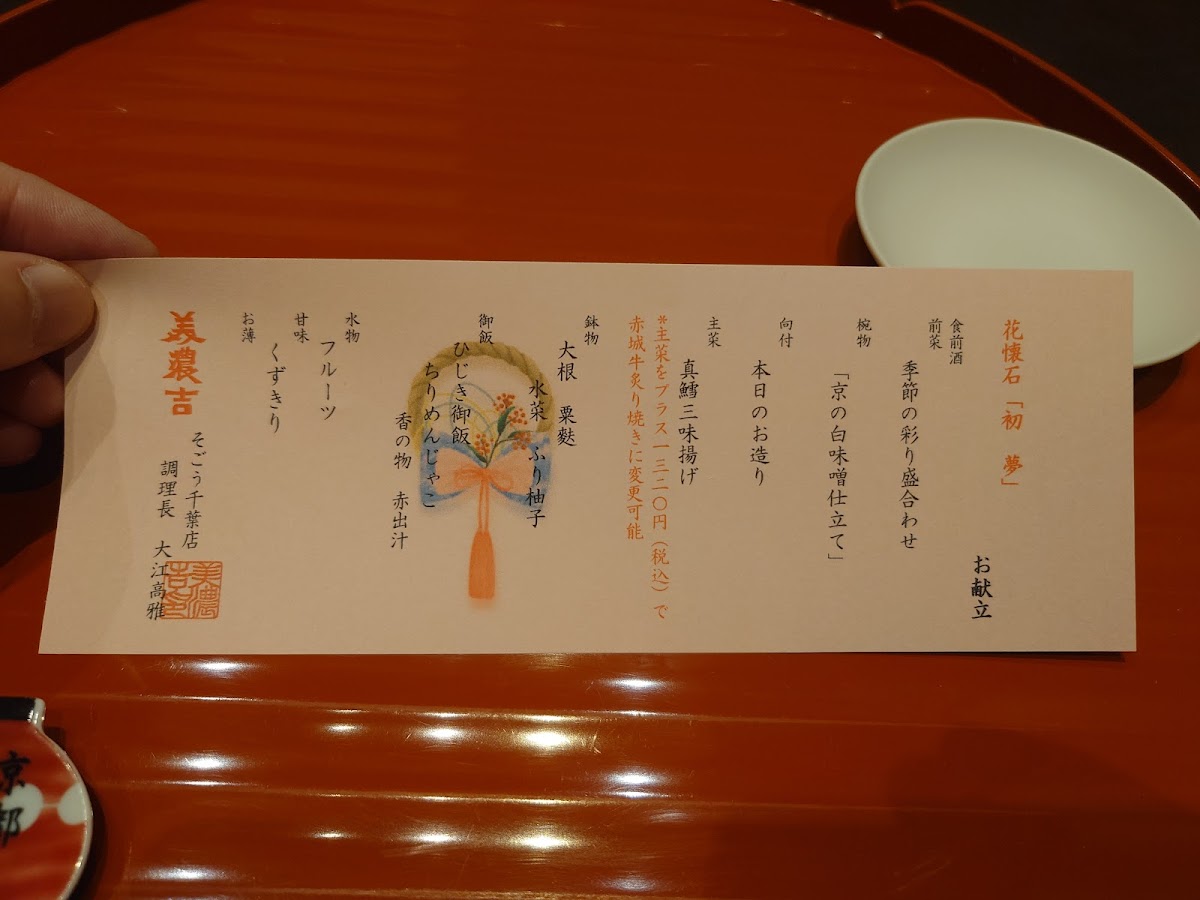 花懐石「初 夢」
お献立
食前酒
前菜
季節の彩り盛合わせ
椀物
「京の白味噌仕立て」
向付
本日のお造り
主菜
真鱈三味揚げ
*主菜をプラス一三二〇円(税込)で
赤城牛炙り焼きに変更可能
鉢物
大根 粟麩
水菜 ふり柚子
御飯
ひじき御飯
ちりめんじゃこ
香の物 赤出汁
水物
フルーツ
甘味
くずきり
お薄
美濃吉
そごう千葉店
調理長 大江高雅
美濃
吉邑
京都